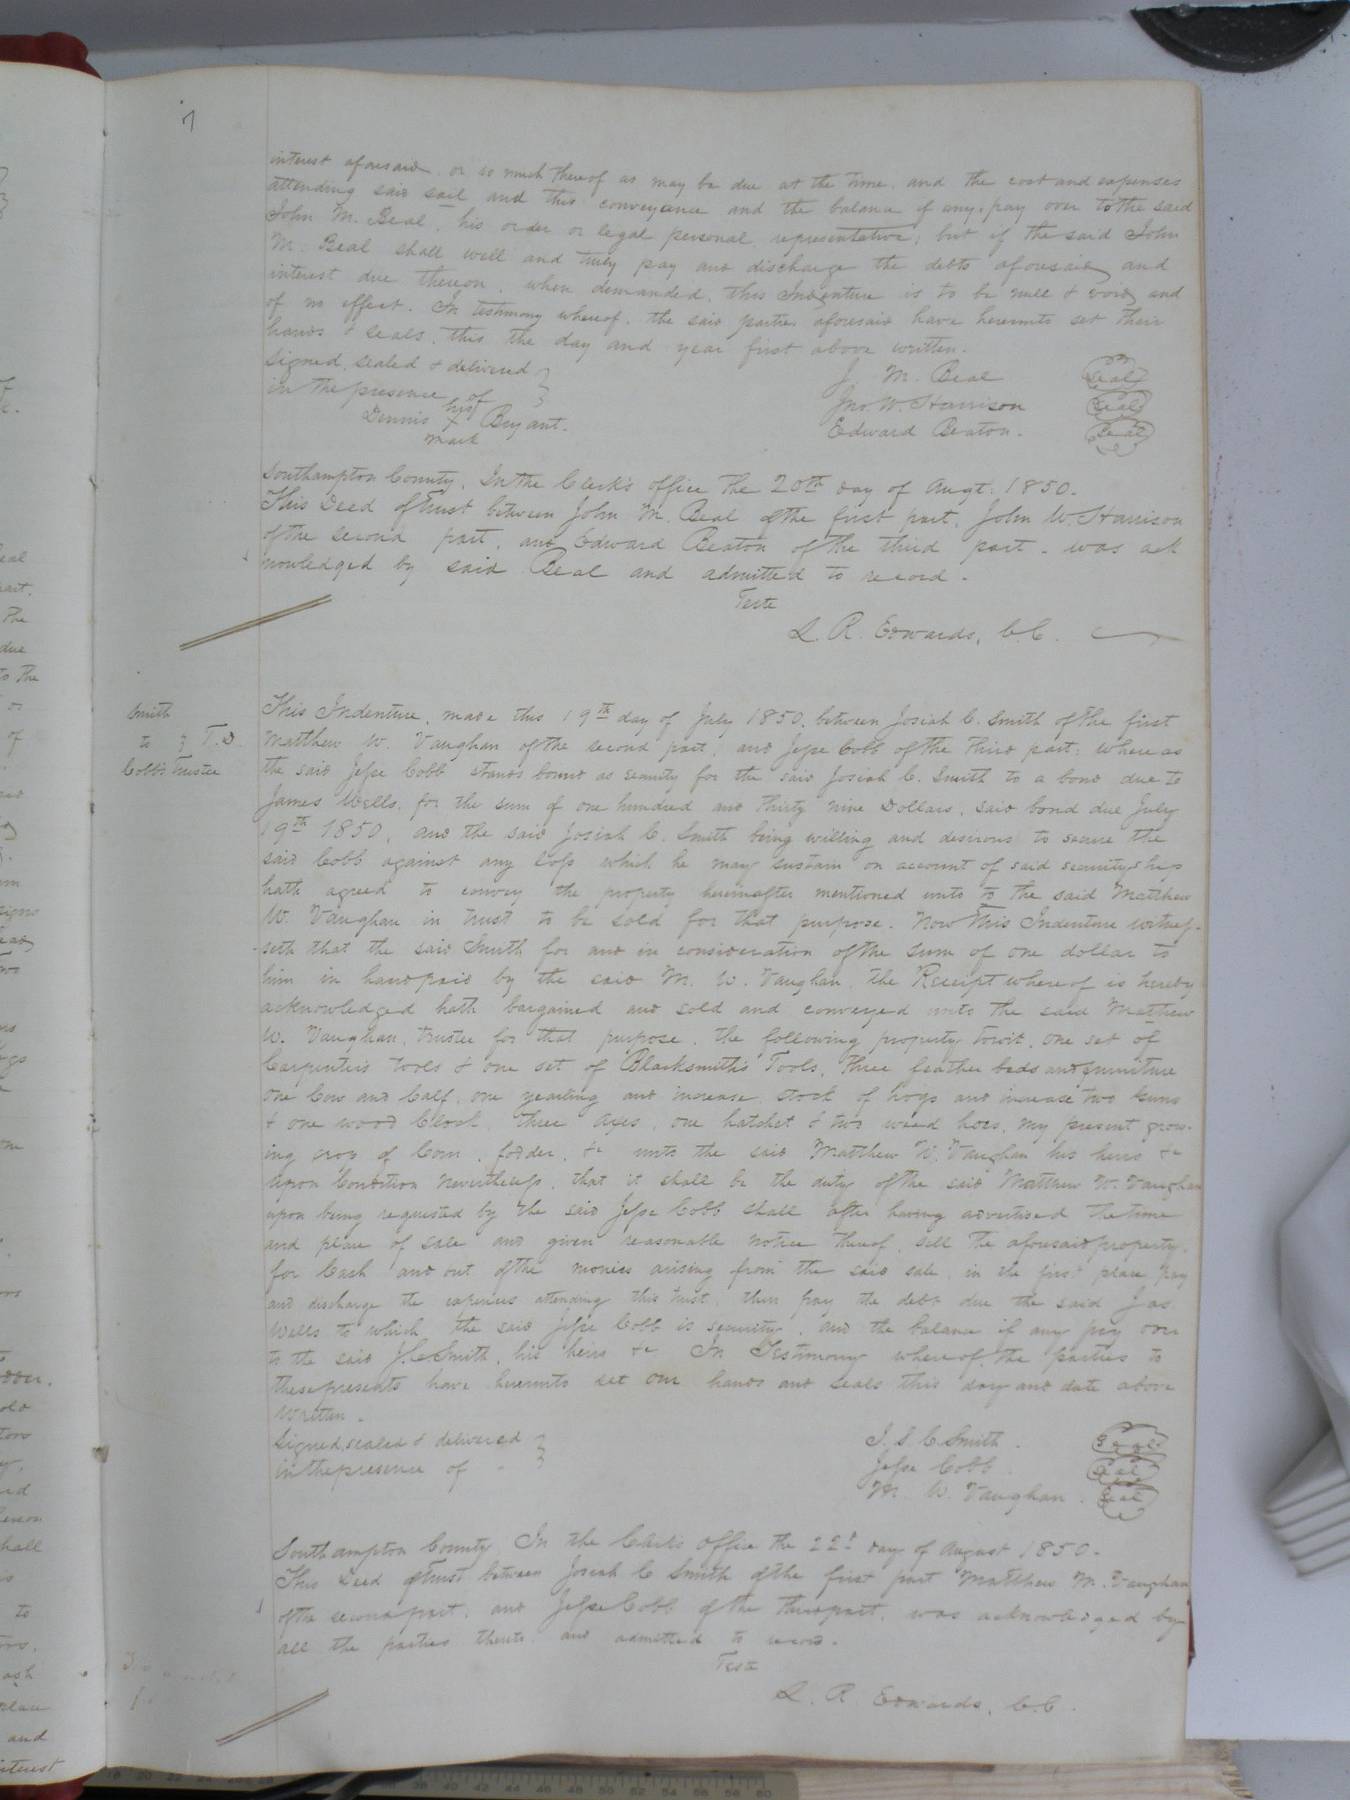 7
interest aforesaid or so much thereof as may be due at the time, and the cost and expenses
attending said sail and this conveyance and the balance if any, pay over to the said
John M. Beal, his order or legal personal representative; but if the said John
M. Beal shall well and truly pay and discharge the debts aforesaid and
interest due thereon, when demanded, this Indenture is to be null & void and
of no effect. In testimony whereof, the said parties aforesaid have hereunto set their
hands & seals, this the day and year first above written.
Signed, sealed & delivered
in the presence of
J. M. Beal seal
Jno. W. Harrison seal
Edward Beaton. seal
his
Dennis X Bryant.
mark
Southampton County, In the Clerk's office the 20th day of Augt. 1850.
This Deed of Trust between John M. Beal of the first part, John W. Harrison
of the second part, and Edward Beaton of the third part, was ack
nowledged by said Beal and admitted to record.
Teste
L. R. Edwards, C.C.
Smith
to } T.D.
Cobb's Trustee
This Indenture, made this 19th day of July 1850, between Josiah C. Smith of the first
Matthew W. Vaughan of the second part, and Jesse Cobb of the third part; whereas
the said Jesse Cobb stands bound as security for the said Josiah C. Smith to a bond due to
James Wells, for the sum of one hundred and thirty nine Dollars, said bond due July
19th 1850, and the said Josiah C. Smith being willing and desirous to secure the
said Cobb against any loss which he may sustain on account of said securityship
hath agreed to convey the property hereinafter mentioned unto to the said Matthew
W. Vaughan in trust to be sold for that purpose. Now this Indenture witnes-
seth that the said Smith for and in consideration of the sum of one dollar to
him in hand paid by the said M. W. Vaughan, the Receipt whereof is hereby
acknowledged hath bargained and sold and conveyed unto the said Matthew
W. Vaughan, trustee for that purpose, the following property towit, one set of
Carpenter's tools & one set of Blacksmith's Tools, three feather beds and furniture
one Cow and Calf, one yearling and increase, stock of hogs and increase two Guns
& one wood Clock, three axes, one hatchet & two weed hoes, my present grow-
ing crop of Corn, fodder, &c unto the said Matthew W. Vaughan his heirs &c
Upon Condition nevertheless, that it shall be the duty of the said Matthew W. Vaughan
upon being requested by the said Jesse Cobb shall after having advertised the time
and place of sale and given reasonable notice thereof, sell the aforesaid property,
for Cash and out of the monies arising from the said sale, in the first place pay
and discharge the expenses attending this trust, then pay the debt due the said Jas
Wells to which the said Jesse Cobb is security, and the balance if any pay over
to the said J. C. Smith, his heirs &c In Testimony whereof the parties to
these presents have hereunto set our hands and seals this day and date above
written.
Signed, sealed & delivered
in the presence of
J. S. C. Smith. seal
Jesse Cobb seal
M. W. Vaughan. seal
Southampton County, In the Clerk's office the 22d day of August 1850.
This Deed of Trust between Josiah C Smith of the first part Matthew M. Vaughan
of the second part, and Jesse Cobb of the third part, was acknowledged by
all the parties thereto and admitted to record.
Teste
L. R. Edwards, C.C.